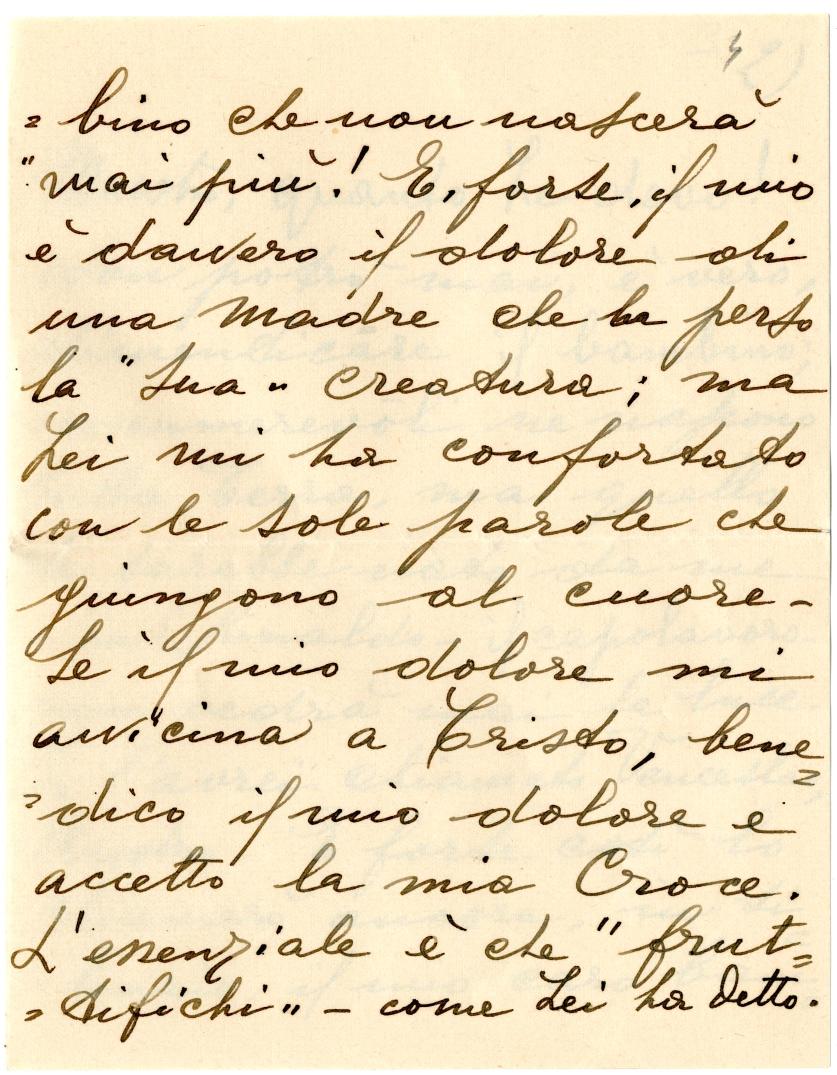 = bino che non nascerà
"mai più! E, forse, il mio
è davvero il dolore di
una madre che ha perso
la "sua" creatura; ma
Lei mi ha confortato
con le sole parole che
giungono al cuore -
Se il mio dolore mi
avvicina a Cristo, bene
= dico il mio dolore e
accetto la mia Croce.
L'essenziale è che "frut=
= tifichi" - come Lei ha detto.